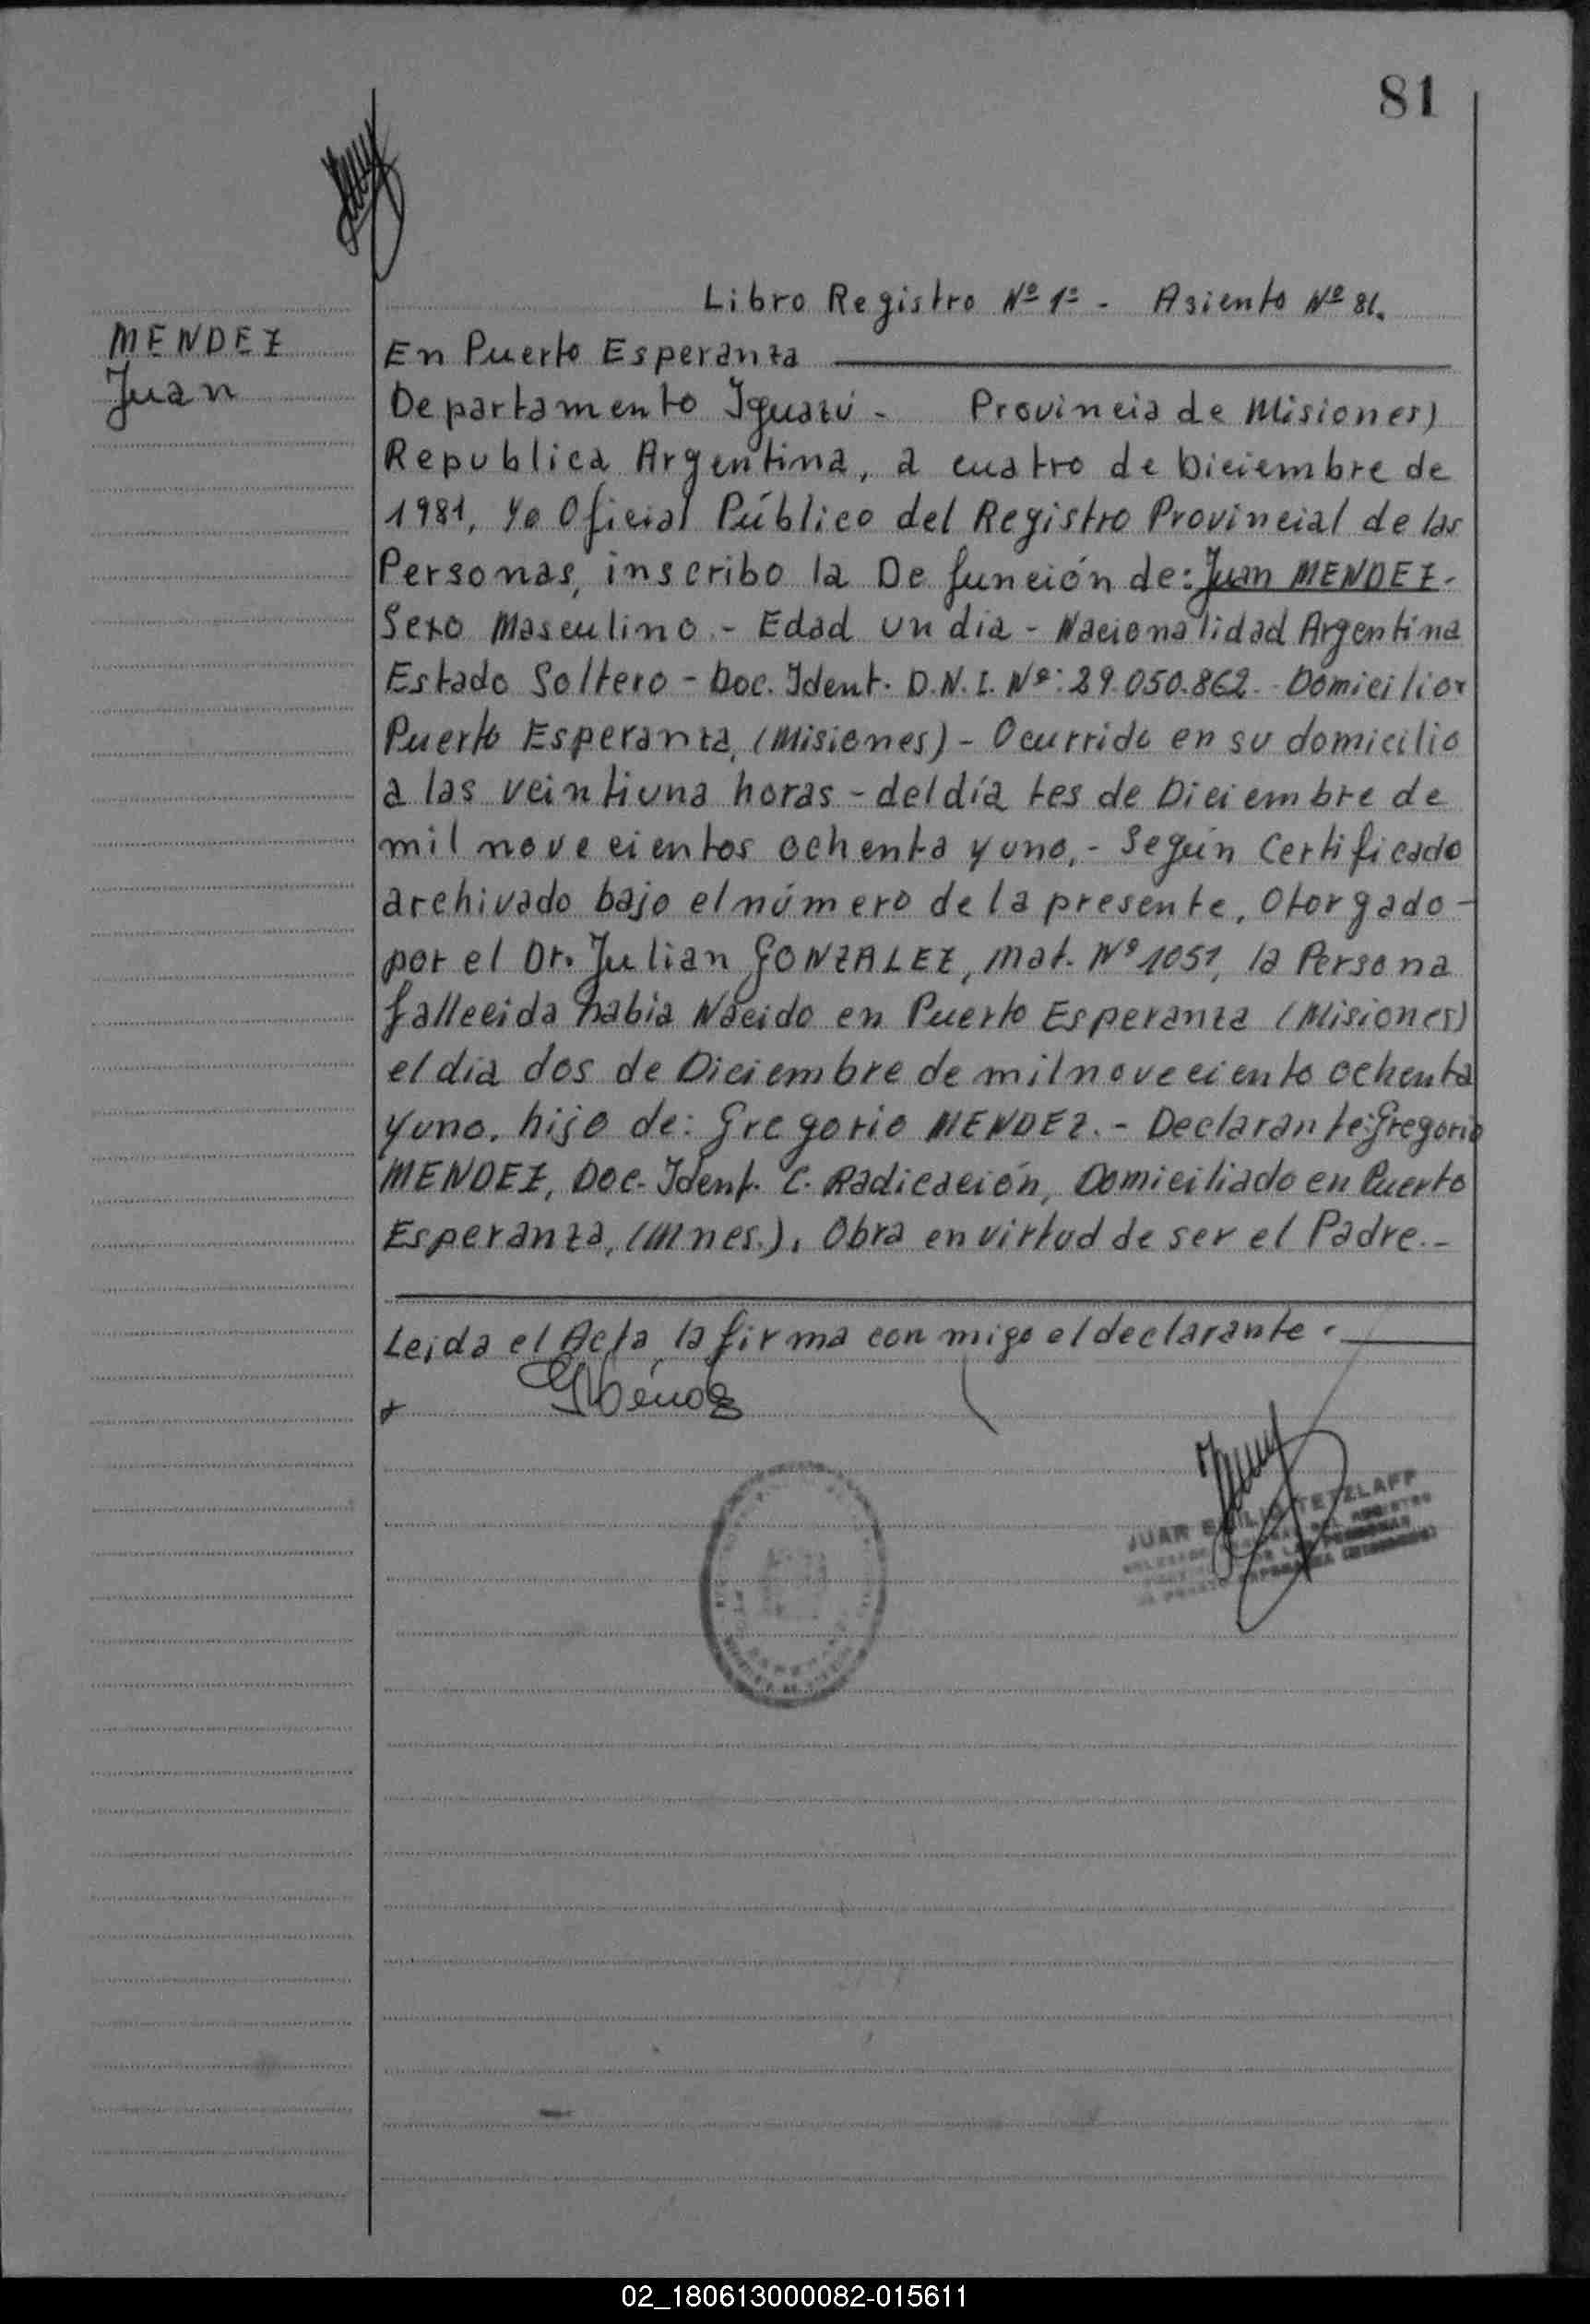 81
Libro Registro Nº 1º - Asiento Nº 81.
MENDEZ
Juan
En Puerto Esperanza
Departamento Iguazú - Provincia de Misiones)
Republica Argentina, a cuatro de Diciembre de
1981, Yo Oficial Público del Registro Provincial de las
Personas, inscribo la Defunción de: Juan MENDEZ.
Sexo Masculino. - Edad un dia - Nacionalidad Argentina
Estado Soltero - Doc. Ident. D.N.I. Nº: 29.050.862. Domicilio
Puerto Esperanza, (Misiones) - Ocurrido en su domicilio
a las veintiuna horas - del día tes de Diciembre de
mil novecientos ochenta y uno, - Según Certificado
archivado bajo el número de la presente, Otorgado -
por el Dr. Julian GONZALEZ, Mat. Nº 1051, la Persona
fallecida habia Nacido en Puerto Esperanza (Misiones)
el dia dos de Diciembre de mil noveciento ochenta
y uno. hijo de: Gregorio MENDEZ. - Declarante: Gregorio
MENDEZ, Doc. Ident. C. Radicación, Domiciliado en Puerto
Esperanza, (Mnes.), Obra en virtud de ser el Padre. -
Leida el Acta, la firma con migo el declarante.
JUAN EMILIO TETZLAFF
02_180613000082-015611